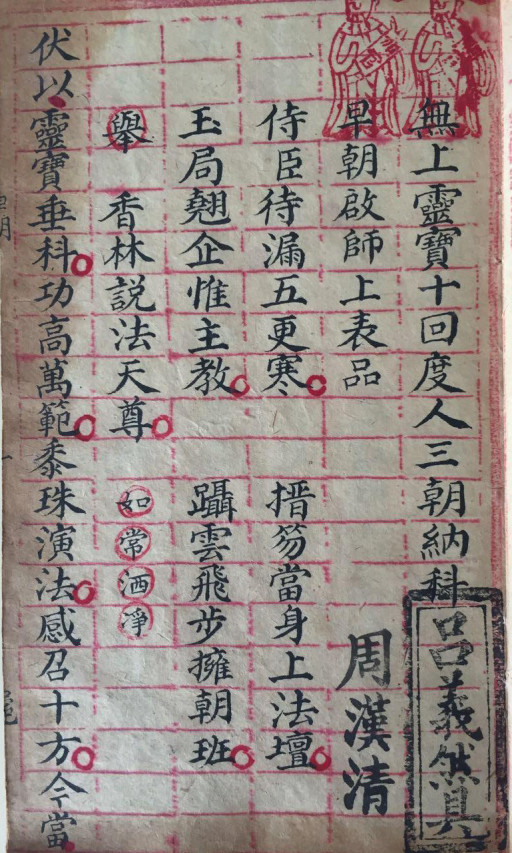 無上靈寶十回度人三朝納科
早朝啟師上表品
周漢清
侍臣待漏五更寒 搢笏當身上法壇
玉局翹企惟主教 躡雲飛步擁朝班
舉 香林説法天尊 如常洒淨
伏以靈寶垂科功高萬範黍珠演法感召十方今當